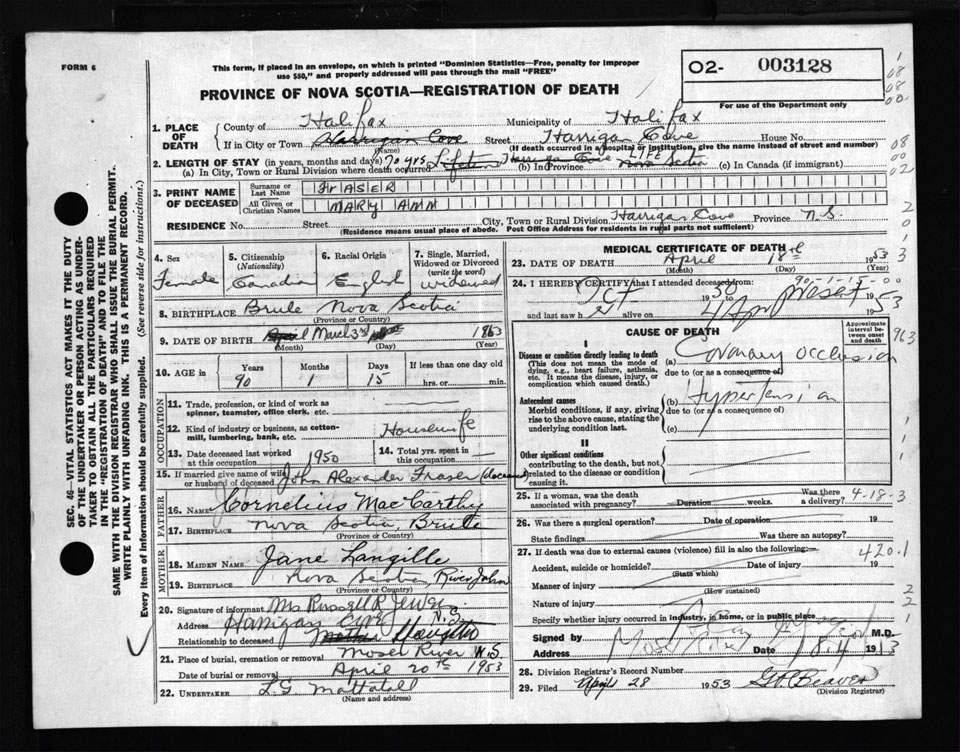 FORM 6
This form, if placed in an envelope, on which is printed "Dominion Statistics—Free, penalty for improper
use $50," and properly addressed will pass through the mail "FREE"
O2- 003128
For use of the Department only
PROVINCE OF NOVA SCOTIA—REGISTRATION OF DEATH
1. PLACE OF DEATH
County of Halifax Municipality of Halifax
If in City or Town Harrigan Cove Street Harrigan Cove House No.
(Name) (If death occurred in a hospital or institution, give the name instead of street and number)
2. LENGTH OF STAY (in years, months and days) 70 yrs Lifetime Harrigan Cove LIFE Nova Scotia
(a) In City, Town or Rural Division where death occurred (b) In Province (c) In Canada (if immigrant)
3. PRINT NAME OF DECEASED
Surname or Last Name FrASER
All Given or Christian Names MARY ANN
RESIDENCE No. Street City, Town or Rural Division Harrigan Cove Province N.S.
(Residence means usual place of abode. Post Office Address for residents in rural parts not sufficient)
SEC. 46—VITAL STATISTICS ACT MAKES IT THE DUTY
OF THE UNDERTAKER OR PERSON ACTING AS UNDER-
TAKER TO OBTAIN ALL THE PARTICULARS REQUIRED
IN THE "REGISTRATION OF DEATH" AND TO FILE THE
SAME WITH THE DIVISION REGISTRAR WHO SHALL ISSUE THE BURIAL PERMIT.
WRITE PLAINLY WITH UNFADING INK. THIS IS A PERMANENT RECORD.
Every item of information should be carefully supplied. (See reverse side for instructions.)
4. Sex Female
5. Citizenship (Nationality) Canadian
6. Racial Origin English
7. Single, Married, Widowed or Divorced (write the word) widowed
8. BIRTHPLACE Brule Nova Scotia
(Province or Country)
9. DATE OF BIRTH April March 3rd 1863
(Month) (Day) (Year)
10. AGE in Years 90 Months 1 Days 15 If less than one day old hrs. or min.
OCCUPATION
11. Trade, profession, or kind of work as spinner, teamster, office clerk, etc.
12. Kind of industry or business, as cotton-mill, lumbering, bank, etc. Housewife
13. Date deceased last worked at this occupation 1950
14. Total yrs. spent in this occupation
15. If married give name of wife or husband of deceased John Alexander Fraser
FATHER
16. NAME Cornelius MacCarthy
17. BIRTHPLACE Nova Scotia, Brule
(Province or Country)
MOTHER
18. MAIDEN NAME Jane Langille
19. BIRTHPLACE Nova Scotia, River John
(Province or Country)
20. Signature of informant Mrs Russell R Jewers
Address Harrigan Cove N.S.
Relationship to deceased Mother Daughter
21. Place of burial, cremation or removal Moser River N.S.
Date of burial or removal April 20th 1953
22. UNDERTAKER L.G. Mattatall
(Name and address)
MEDICAL CERTIFICATE OF DEATH
23. DATE OF DEATH April 18th 1953
(Month) (Day) (Year)
24. I HEREBY CERTIFY that I attended deceased from:
Oct 1950 to present 1953
and last saw h er alive on 4 Apr 1953
CAUSE OF DEATH
Approximate interval between onset and death
I
Disease or condition directly leading to death (a) Coronary occlusion
(This does not mean the mode of dying, e.g., heart failure, asthenia, etc. It means the disease, injury, or complication which caused death.)
due to (or as a consequence of)
Antecedent causes (b) Hypertension
Morbid conditions, if any, giving rise to the above cause, stating the underlying condition last.
due to (or as a consequence of)
(c)
II
Other significant conditions
contributing to the death, but not related to the disease or condition causing it.
25. If a woman, was the death associated with pregnancy? Duration weeks. Was there a delivery?
4-18-3
26. Was there a surgical operation? Date of operation 19
State findings Was there an autopsy?
27. If death was due to external causes (violence) fill in also the following:—
420.1
Accident, suicide or homicide? Date of injury 19
(State which)
Manner of injury
(How sustained)
Nature of injury
Specify whether injury occurred in industry, in home, or in public place
Signed by M.D.
Address Moser River Date 18.4 1953
28. Division Registrar's Record Number
29. Filed April 28 1953 Beaver
(Division Registrar)